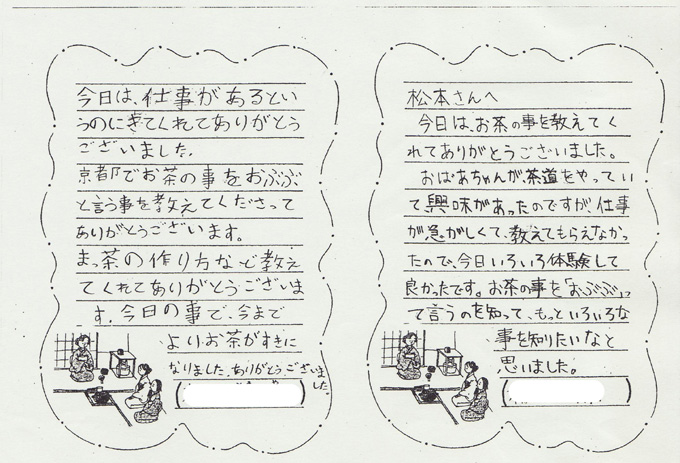 今日は、仕事があるとい
うのにきてくれてありがとう
ございました。
京都でお茶の事をおぶぶ
と言う事を教えてくださって
ありがとうございます。
まっ茶の作り方など教え
てくれてありがとうございま
す。今日の事で、今まで
よりお茶がすきに
なりました。ありがとうございま
した。
松本さんへ
今日は、お茶の事を教えてく
れてありがとうございました。
おばあちゃんが茶道をやってい
て興味があったのですが、仕事
が急がしくて、教えてもらえなかっ
たので、今日いろいろ体験して
良かったです。お茶の事を「おぶぶ」っ
て言うのを知って、もっといろいろな
事を知りたいなと
思いました。